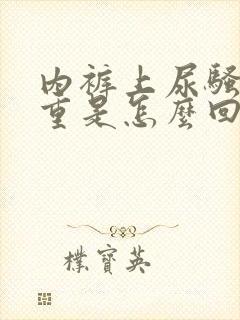 内裤上尿騷
重是怎麼回
樸寶英